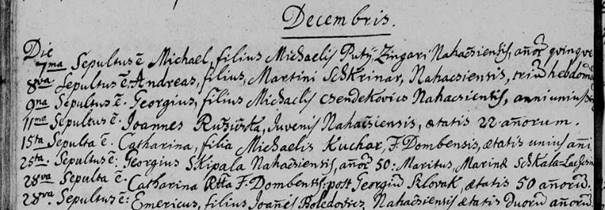 Decembris.
Die
7ma Sepultus ē Michael filius Michaelis Puty Zingari Nahacsiensis, añor̄ qvinqve
8va Sepultus ē Andreas, filius Martini Schkrinar, Nahacsiensis, triū hebdom
9na Sepultus ē Georgius, filius Michaelis Csendekovics Nahacsiensis, anni unius
11ma Sepultus ē Joannes Ružitska, Juvenis Nahacsiensis, ætatis 22 añorum.
15ta Sepulta ē Catharina, filia Michaelis Kuchar, F. Dombensis, ætatis unius añi
25ta Sepultus ē: Georgius Skipala Nahacsiensis, añor̄ 50: Maritus, Marinæ
28va Sepulta ē: Catharina Rtta F. Dombensis post Georgiū Klovak, ætatis 50 añorū.
28va Sepultus ē: Emericus, filius Joañis Boledovics, Nahacsiensis ætatis Duorū añorū.